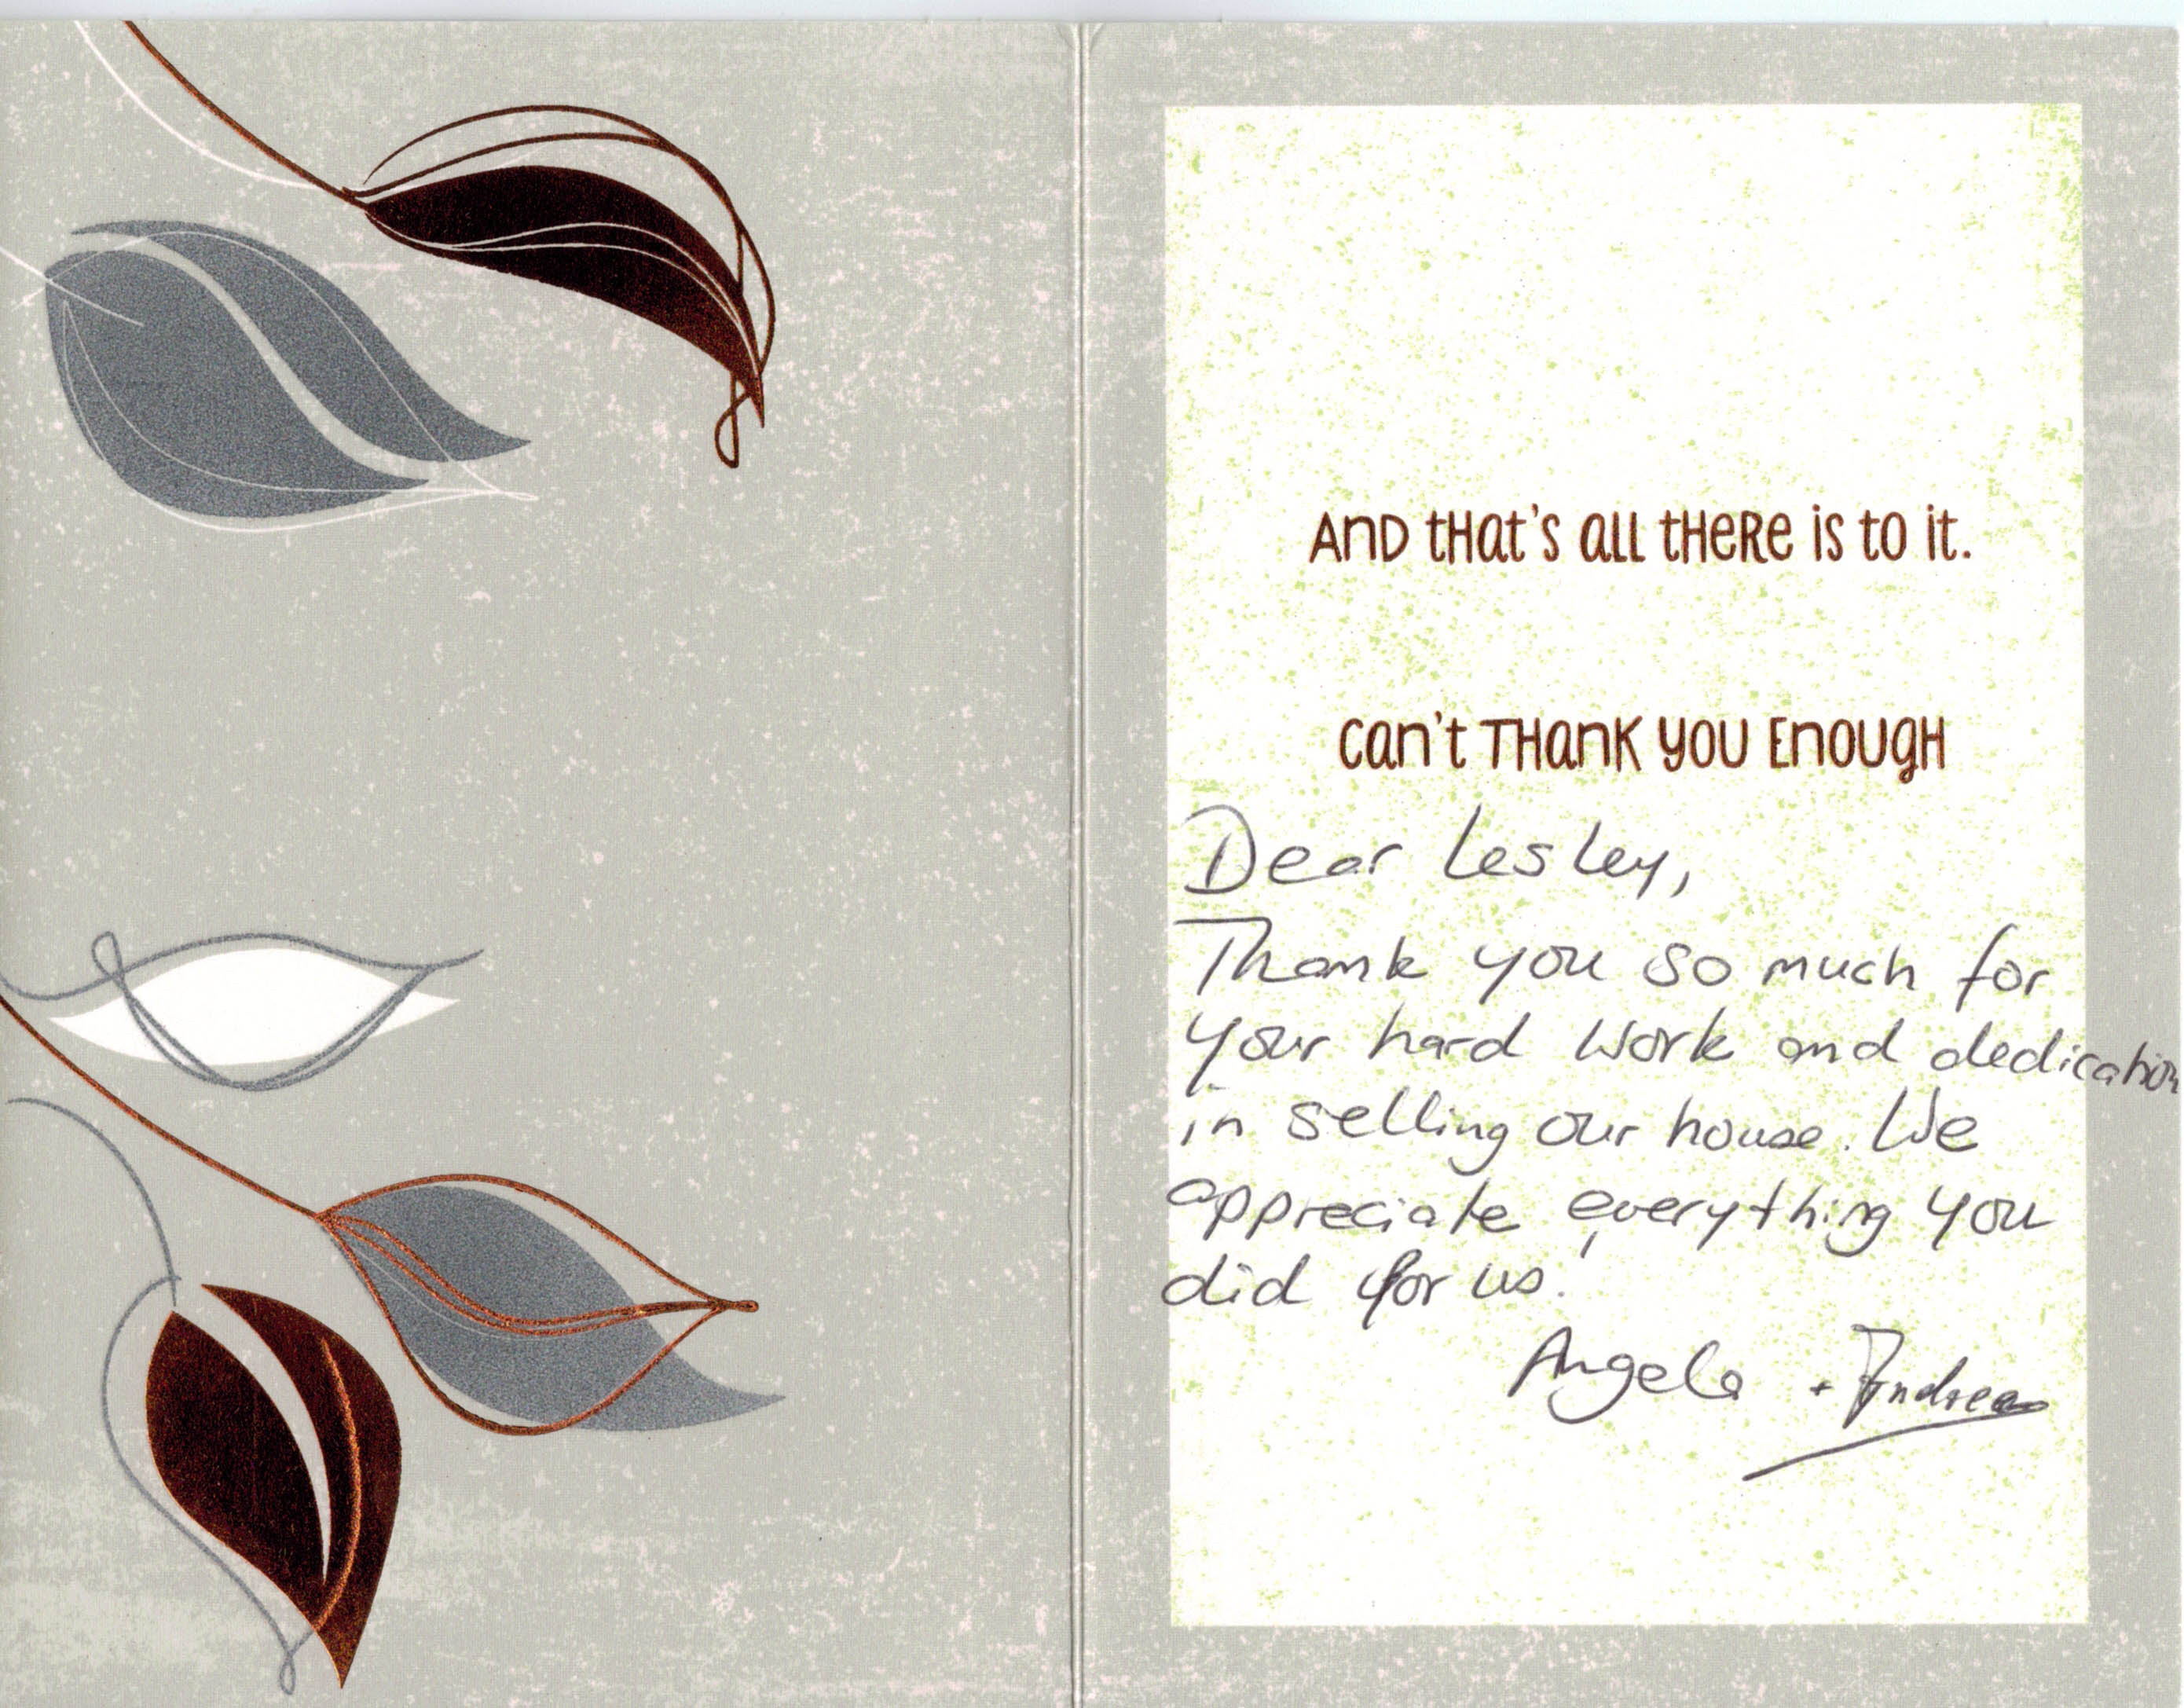 And that's all there is to it.
Can't Thank You Enough
Dear Lesley,
Thank you so much for
your hard work and dedication
in selling our house. We
appreciate everything you
did for us!
Angela + Andreas